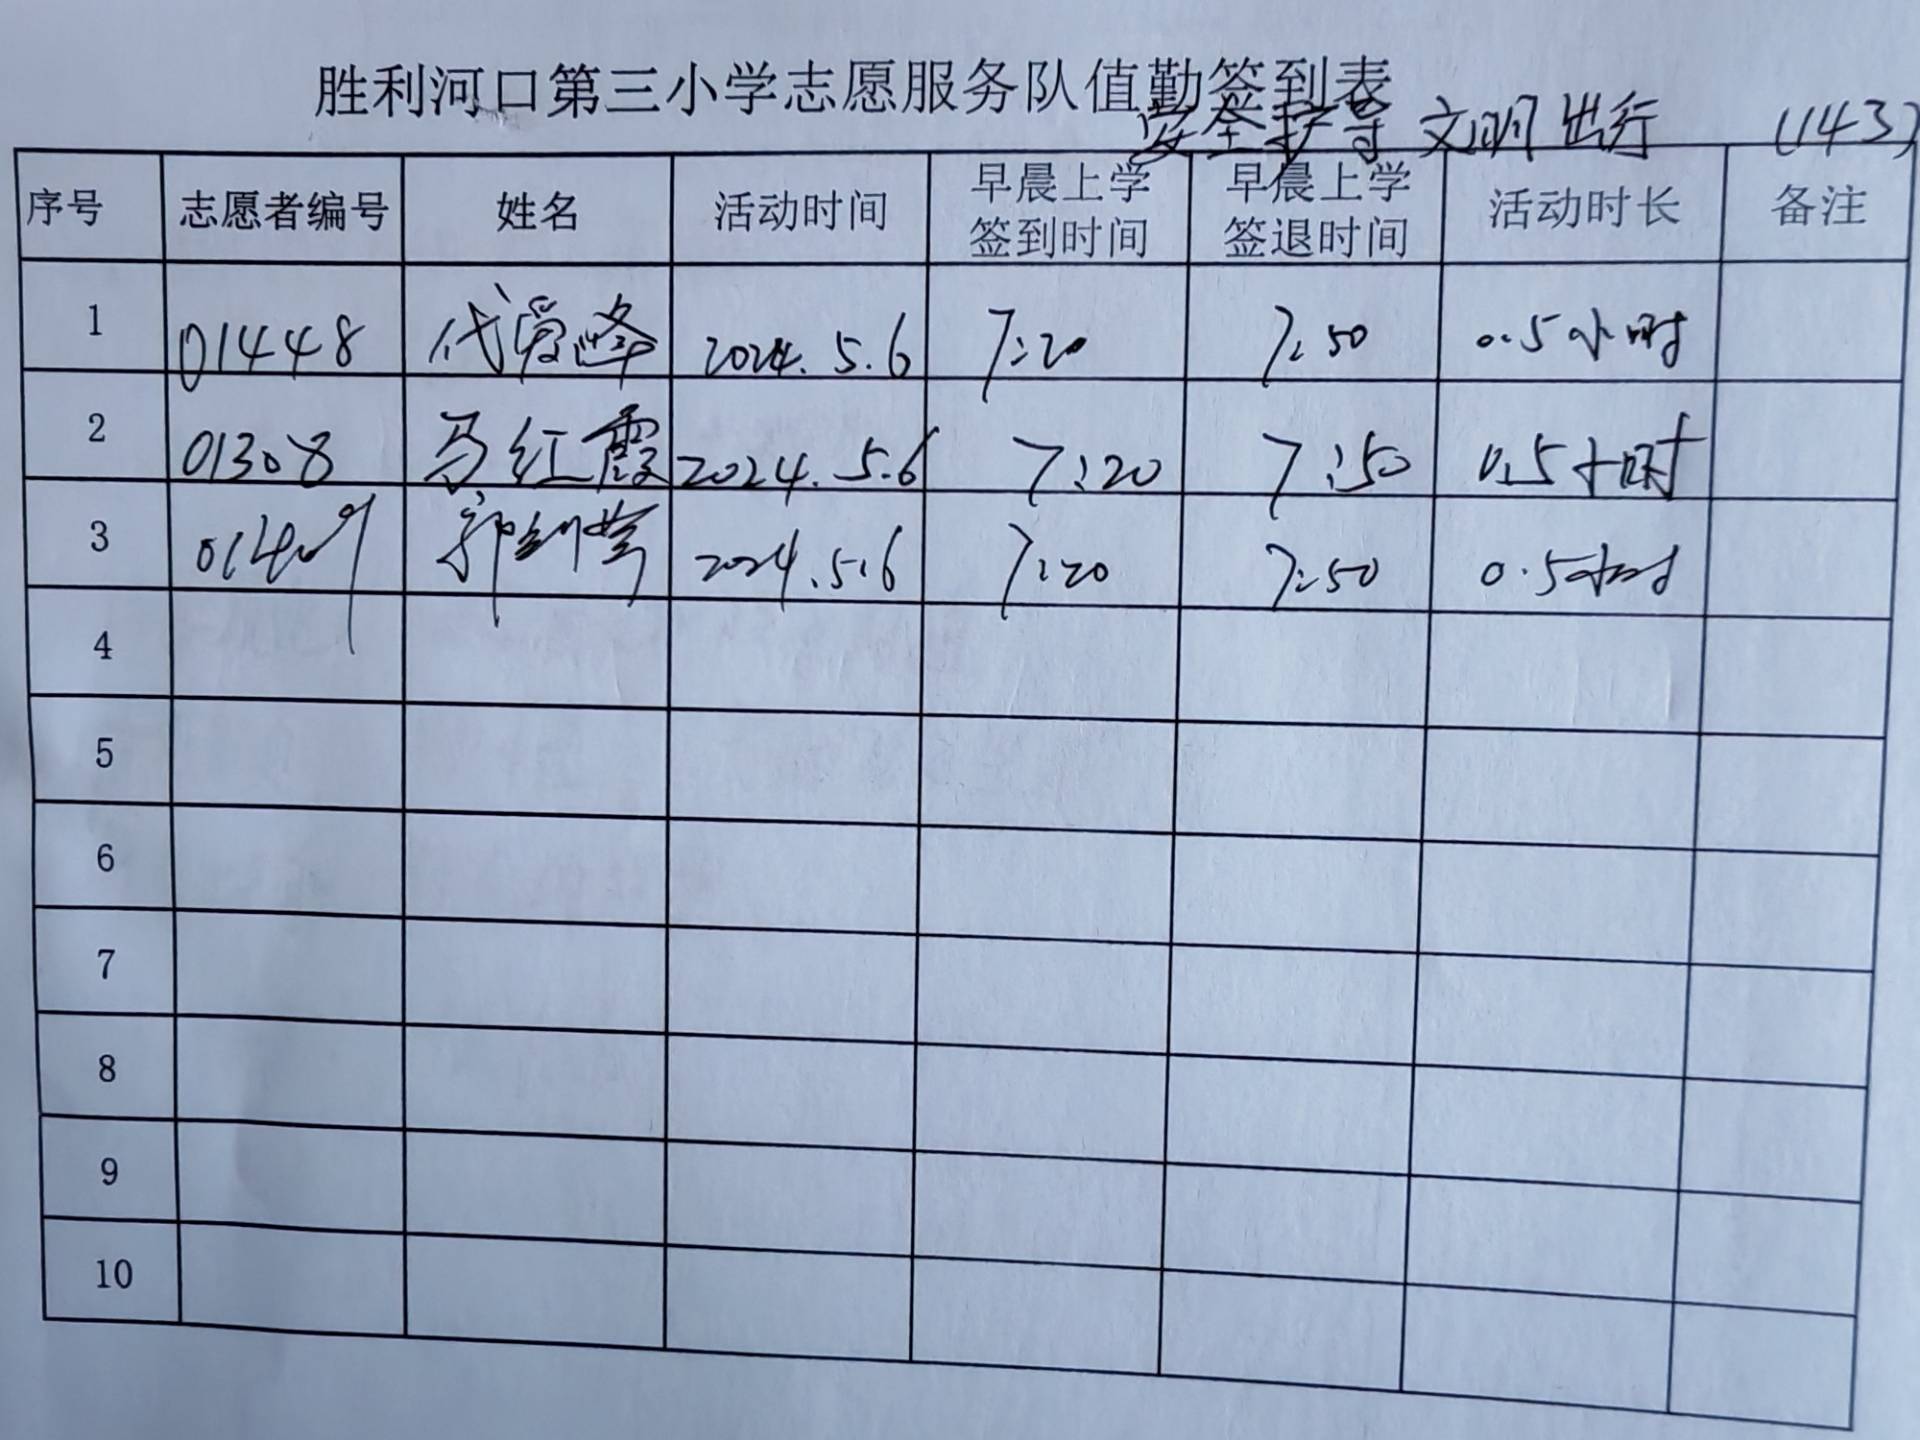 胜利河口第三小学志愿服务队值勤签到表
安全护导 文明出行 (143)
序号 志愿者编号 姓名 活动时间 早晨上学签到时间 早晨上学签退时间 活动时长 备注
1 01448 代爱峰 2024.5.6 7:20 7:50 0.5小时
2 01308 马红霞 2024.5.6 7:20 7:50 0.5小时
3 郭 2024.5.6 7:20 7:50 0.5小时
4
5
6
7
8
9
10